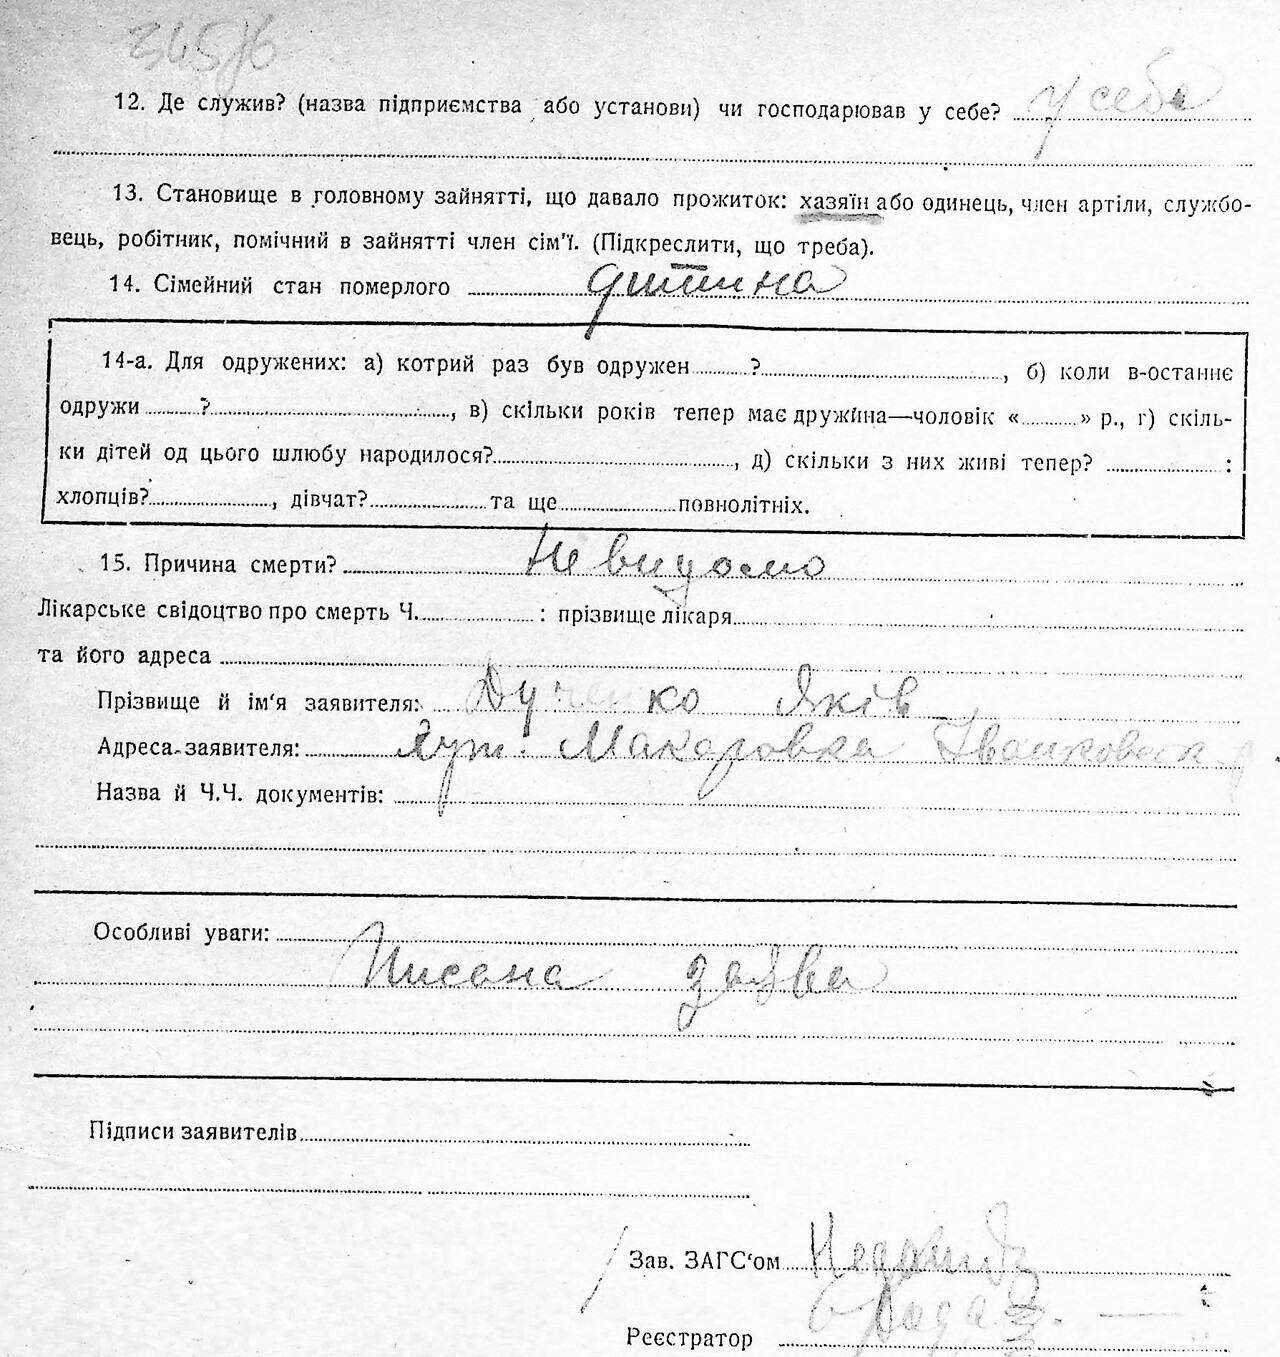 345/6
12. Де служив? (назва підприємства або установи) чи господарював у себе? у себе
13. Становище в головному зайнятті, що давало прожиток: хазяїн або одинець, член артіли, службо-
вець, робітник, помічний в зайнятті член сім'ї. (Підкреслити, що треба).
14. Сімейний стан померлого дитина
14-а. Для одружених: а) котрий раз був одружен ?, б) коли в-останнє
одружи ?, в) скільки років тепер має дружина—чоловік « » р., г) скіль-
ки дітей од цього шлюбу народилося?, д) скільки з них живі тепер? :
хлопців?, дівчат? та ще повнолітніх.
15. Причина смерти? Невидомо
Лікарське свідоцтво про смерть Ч. : прізвище лікаря
та його адреса
Прізвище й ім'я заявителя: Дученко Яків
Адреса заявителя: Хут. Макаровка Іванковськ.
Назва й Ч.Ч. документів:
Особливі уваги:
Писана заява
Підписи заявителів
Зав. ЗАГС'ом
Реєстратор